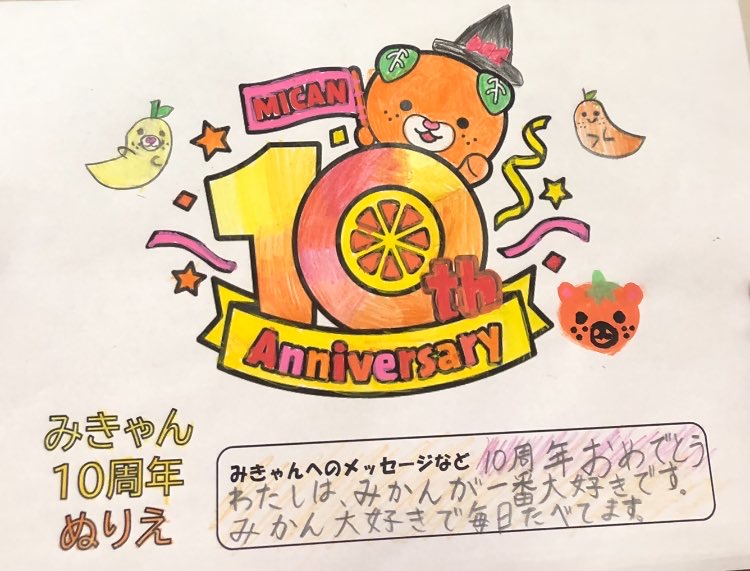 MICAN
10th
Anniversary
みきゃん
10周年
ぬりえ
みきゃんへのメッセージなど 10周年おめでとう
わたしは、みかんが一番大好きです。
みかん大好きで毎日たべてます。